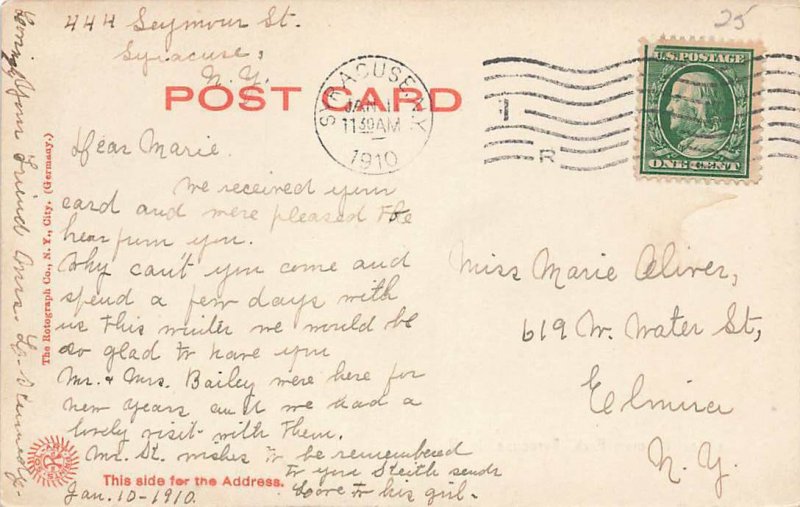 444 Seymour St.
Syracuse,
N.Y.
25
POST CARD
SYRACUSE, N.Y.
JAN 1
11 30 AM
1910
R
U.S. POSTAGE
ONE CENT
Dear Marie.
We received your
card and were pleased to
hear from you.
Why can't you come and
spend a few days with
us this winter we would be
so glad to have you
Mr. & Mrs. Bailey were here for
new years and we had a
lovely visit with them.
Mr. St. wishes to be remembered
to you Steith sends
Love to his girl.
Jan. 10-1910.
Loving your Friend Mrs. L.
The Rotograph Co., N. Y., City. (Germany.)
This side for the Address.
Miss Marie Oliver,
619 W. Water St,
Elmira
N.Y.